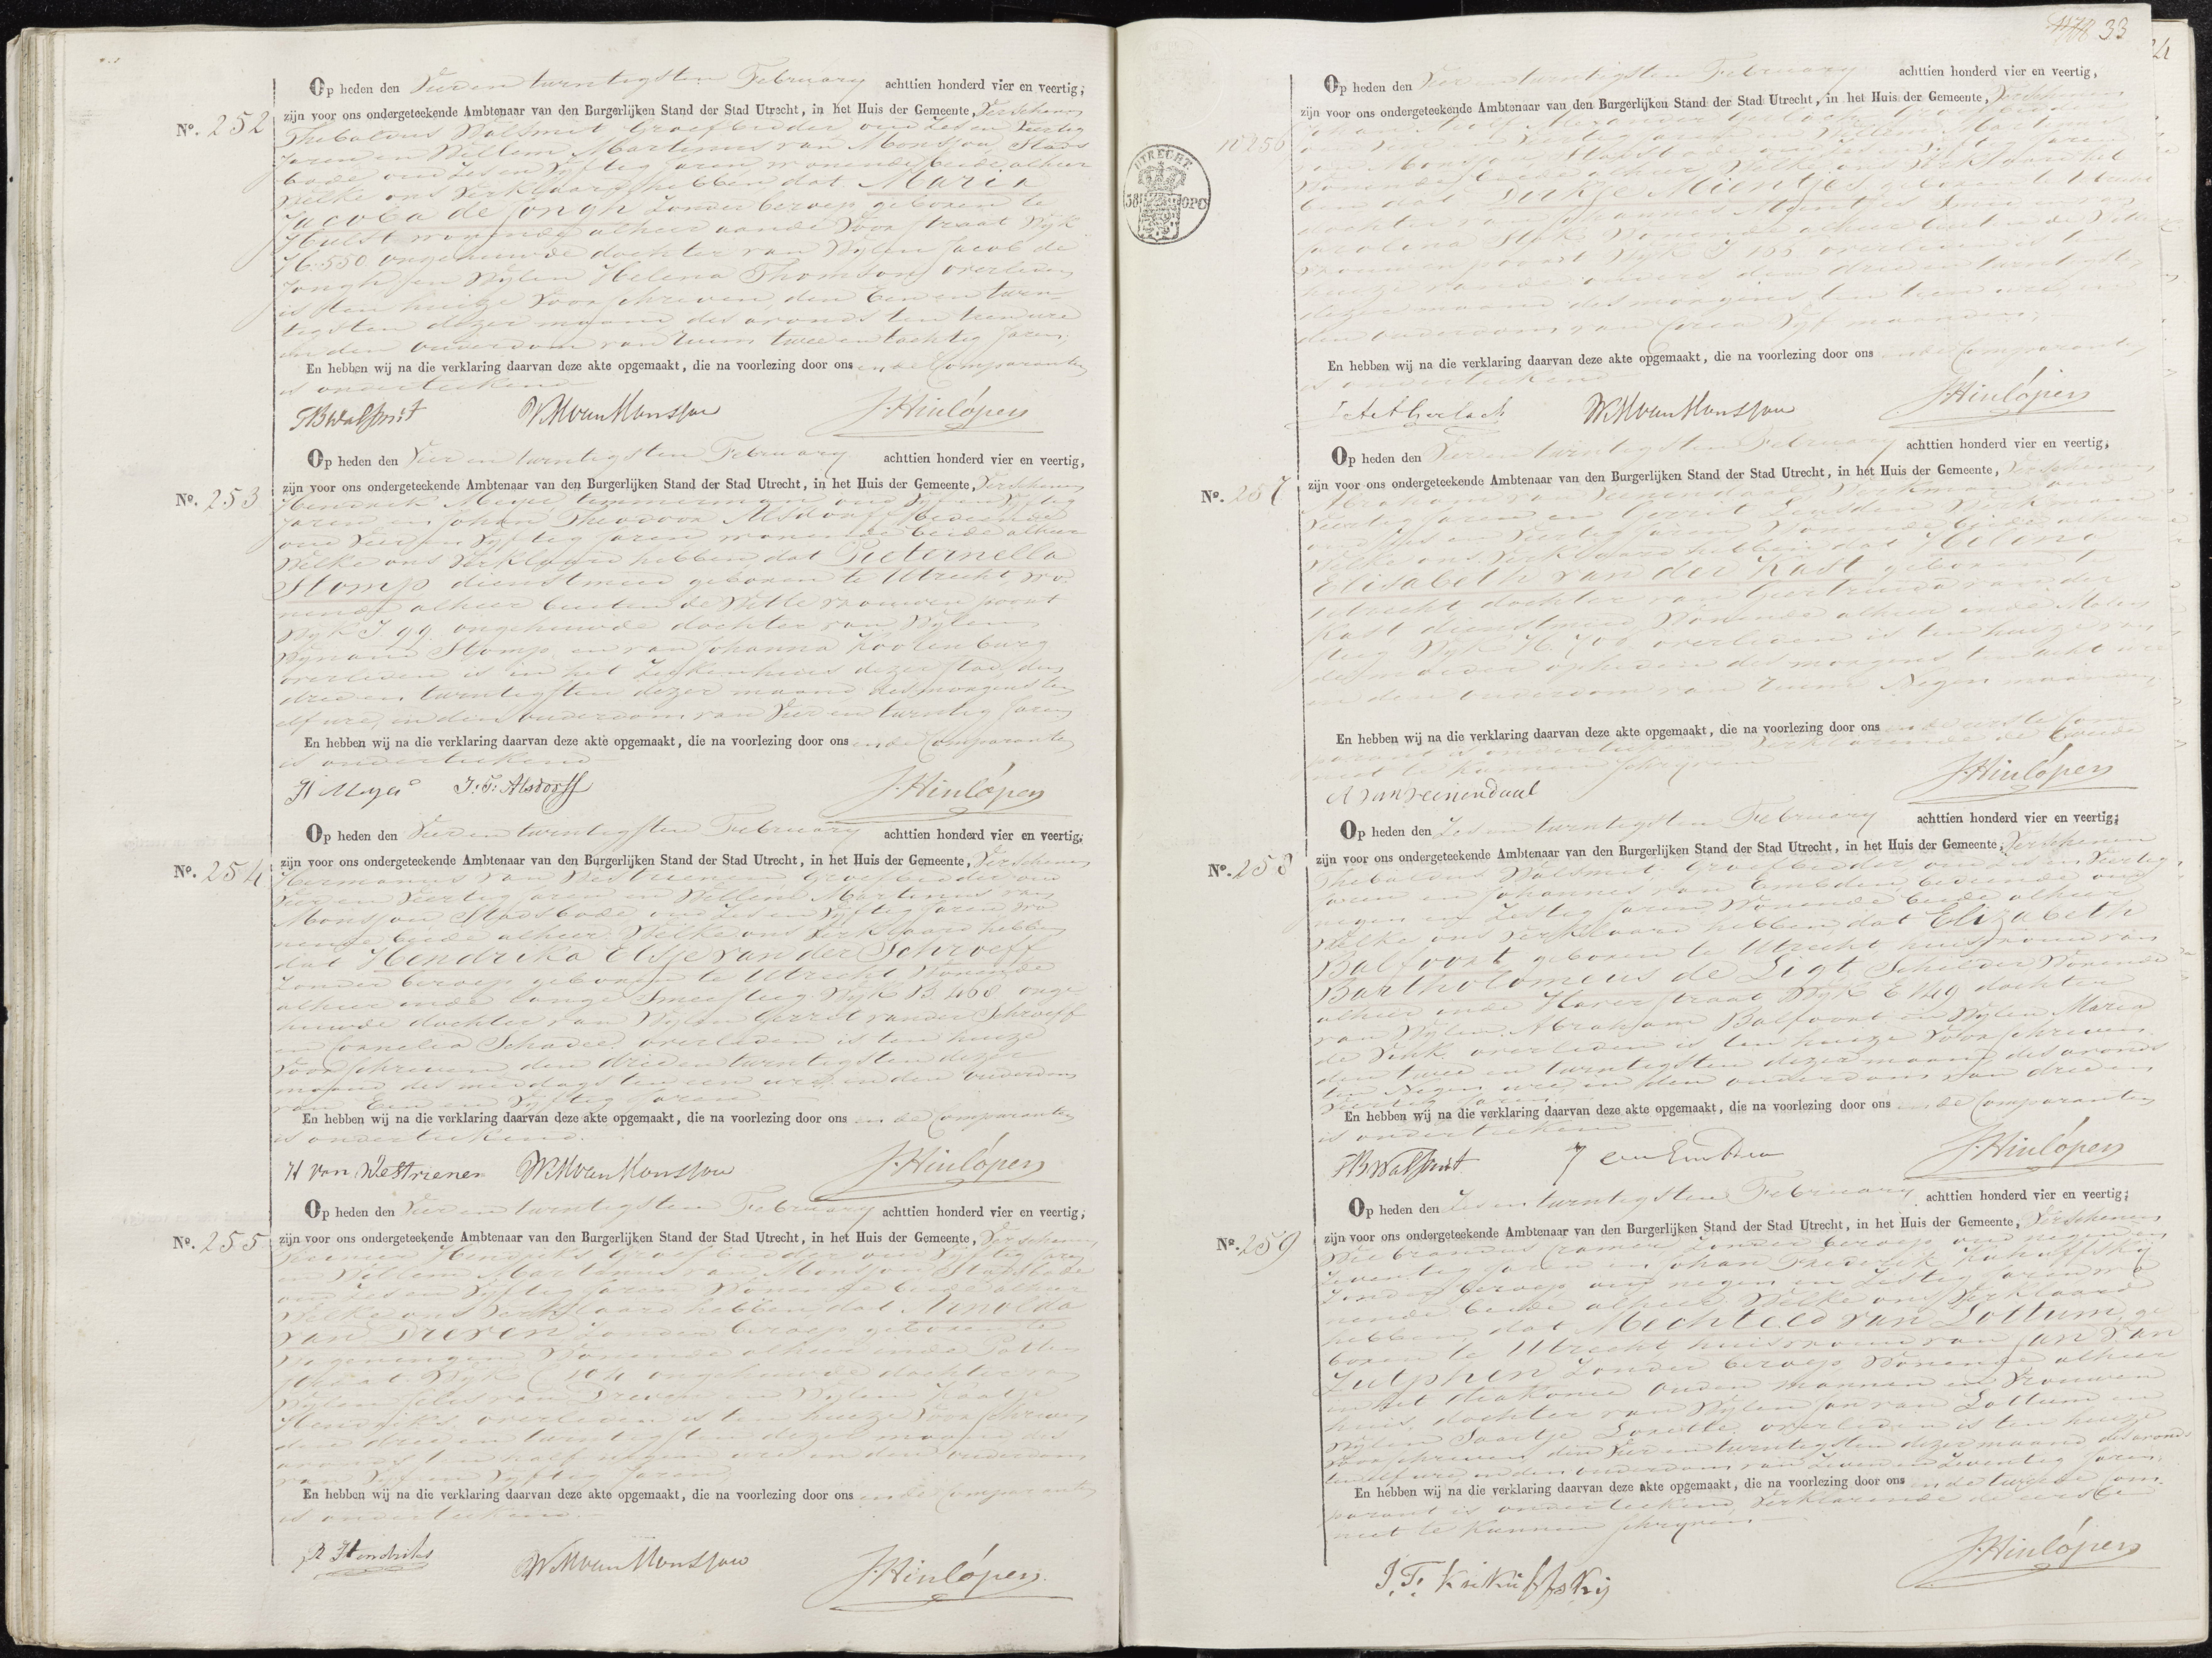 Op heden den Vier en twintigsten February achttien honderd vier en veertig,
zijn voor ons ondergeteekende Ambtenaar van den Burgerlijken Stand der Stad Utrecht, in het Huis der Gemeente, Verschenen
No. 252
Thebaldus Walsmit Groefbidder oud Zes en Veertig
Jaren en Willem Martinus van Monsjou Stads
bode oud Zes en Vyftig Jaren wonende beide alhier
Welke ons Verklaard hebben dat Maria
Jacoba de Jongh Zonder beroep geboren te
Hulst wonende alhier aande Voorstraat Wyk
H. 550 ongehuwde dochter van Wylen Jacob de
Jongh en Wylen Helena Thomson overleden
is ten huize Voorschreven den Een en twin-
tigsten dezer maand des avonds ten tien ure
in den ouderdom van ruim twee en tachtig Jaren
En hebben wij na die verklaring daarvan deze akte opgemaakt, die na voorlezing door ons en de Comparanten
is onderteekend
TB Walsmit WM van Monsjou J. Hinlópen
Op heden den Vier en twintigsten February achttien honderd vier en veertig,
zijn voor ons ondergeteekende Ambtenaar van den Burgerlijken Stand der Stad Utrecht, in het Huis der Gemeente, Verschenen
No. 253
Hendrik Meyer timmerman oud Vyf en Vyftig
Jaren en Johan Theodoor Alsdorff bediende
oud Vier en Vyftig Jaren wonende beide alhier
Welke ons Verklaard hebben dat Pieternella
Stomp dienstmeid geboren te Utrecht wo-
nende alhier buiten de Witte vrouwen poort
Wyk I 99 ongehuwde dochter van Wylen
Wynand Stomp en van Johanna Koolenburg
overleden is in het Ziekenhuis dezer Stad den
drie en twintigsten dezer maand des morgens ten
elf ure, in den ouderdom van Vier en twintig Jaren
En hebben wij na die verklaring daarvan deze akte opgemaakt, die na voorlezing door ons en de Comparanten
is onderteekend
H Meyer J. T. Alsdorff J. Hinlópen
Op heden den Vier en twintigsten February achttien honderd vier en veertig,
zijn voor ons ondergeteekende Ambtenaar van den Burgerlijken Stand der Stad Utrecht, in het Huis der Gemeente, Verschenen
No. 254
Hermanus van Westrienen Groefbidder oud
Vier en Veertig Jaren en Willem Martinus van
Monsjou Stadsbode oud Zes en Vyftig Jaren wo
nende beide alhier Welke ons Verklaard hebben
dat Hendrika Elsje van der Schroeff
Zonder beroep geboren te Utrecht Wonende
alhier inde lange Smeesteeg Wyk B. 468 onge
huwde dochter van Wylen Gerrit van der Schroeff
en Cornelia Schadee overleden is ten huize
Voorschreven den drie en twintigsten dezer
maand des middags ten een ure, in den ouderdom
van Een en Vyftig Jaren
En hebben wij na die verklaring daarvan deze akte opgemaakt, die na voorlezing door ons en de Comparanten
is onderteekend.
H van Westrienen WM van Monsjou J. Hinlópen
Op heden den Vier en twintigsten February achttien honderd vier en veertig,
zijn voor ons ondergeteekende Ambtenaar van den Burgerlijken Stand der Stad Utrecht, in het Huis der Gemeente, Verschenen
No. 255
Hendriks Groefbidder oud Vyftig Jaren
en Willem Martinus van Monsjou Stadsbode
oud Zes en Vyftig Jaren Wonende beide alhier
Welke ons Verklaard hebben dat Arnolda
van Dreven Zonder beroep geboren te
Wageningen Wonende alhier inde
Straat Wyk C ongehuwde dochter van
Wylen van Dreven en Wylen Kaatje
Hendriks overleden is ten huize Voorschreven
den drie en twintigsten dezer maand des
avonds ten half negen ure in den ouderdom
van Vyf en Vyftig Jaren
En hebben wij na die verklaring daarvan deze akte opgemaakt, die na voorlezing door ons en de Comparanten
is onderteekend.
R Hendriks WM van Monsjou J. Hinlópen
33
Op heden den Vier en twintigsten February achttien honderd vier en veertig,
zijn voor ons ondergeteekende Ambtenaar van den Burgerlijken Stand der Stad Utrecht, in het Huis der Gemeente, Verschenen
No 256
UTRECHT
38 OPC
Johan Gerlach
oud en Veertig Jaren en Willem Martinus
van Monsjou Stadsbode oud Zes en Vyftig Jaren
Wonende beide alhier Welke ons Verklaard heb
ben dat Dirkje Mientjes geboren te Utrecht
dochter van Johannes Mientjes en van
Carolina Stok Wonende alhier buiten de Witte
Vrouwen poort Wyk I 155 overleden is ten
huize van de ouders den drie en twintigsten
dezer maand des morgens ten tien ure, in
den ouderdom van Circa Vyf maanden,
En hebben wij na die verklaring daarvan deze akte opgemaakt, die na voorlezing door ons en de Comparanten
is onderteekend
Gerlach WM van Monsjou J. Hinlópen
Op heden den Vier en twintigsten February achttien honderd vier en veertig,
zijn voor ons ondergeteekende Ambtenaar van den Burgerlijken Stand der Stad Utrecht, in het Huis der Gemeente, Verschenen
No. 257
Abraham van Veenendaal Werkman oud
Veertig Jaren en Gerrit Leusden Werkman
oud Zes en Veertig Jaren Wonende beide alhier
Welke ons Verklaard hebben dat Helena
Elisabeth van der Kast geboren te
Utrecht dochter van Geertruida van der
Kast dienstmeid Wonende alhier inde Molen
steeg Wyk H. 700 overleden is ten huize van
de moeder op heden des morgens ten acht ure
in den ouderdom van ruim Negen maanden,
En hebben wij na die verklaring daarvan deze akte opgemaakt, die na voorlezing door ons en de eerste Com
parant is onderteekend Verklarende de tweede
niet te kunnen schryven
A van Veenendaal J. Hinlópen
Op heden den Zes en twintigsten February achttien honderd vier en veertig,
zijn voor ons ondergeteekende Ambtenaar van den Burgerlijken Stand der Stad Utrecht, in het Huis der Gemeente, Verschenen
No. 258
Thebaldus Walsmit Groefbidder oud Zes en Veertig
Jaren en Johannes van Embden bediende oud
negen en Zestig Jaren Wonende beide alhier
Welke ons Verklaard hebben dat Elizabeth
Balfoort geboren te Utrecht huisvrouw van
Bartholomeus de Ligt Schilder Wonende
alhier inde Haverstraat Wyk E 149 dochter
van Wylen Abraham Balfoort en Wylen Maria
de Vink overleden is ten huize Voorschreven
den twee en twintigsten dezer maand des avonds
ten Negen ure, in den ouderdom van drie en
Jaren
En hebben wij na die verklaring daarvan deze akte opgemaakt, die na voorlezing door ons en de Comparanten
is onderteekend
TB Walsmit J van Embden J. Hinlópen
Op heden den Zes en twintigsten February achttien honderd vier en veertig,
zijn voor ons ondergeteekende Ambtenaar van den Burgerlijken Stand der Stad Utrecht, in het Huis der Gemeente, Verschenen
No. 259
Wiebrandus Cramer Zonder beroep oud negen en
Zeventig Jaren en Johan Frederik Kukuffsky
Zonder beroep oud negen en Zestig Jaren wo
nende beide alhier Welke ons Verklaard
hebben, dat Mechteld van Lottum ge
boren te Utrecht huisvrouw van Jan van
Zutphen Zonder beroep Wonende alhier
in het diakonie oude mannen en Vrouwen
huis, dochter van Wylen Jan van Lottum en
Wylen Saartje Loxelle overleden is ten huize
Voorschreven den Vier en twintigsten dezer maand des avonds
ten elf ure, in den ouderdom van Zeven en Zeventig Jaren,
En hebben wij na die verklaring daarvan deze akte opgemaakt, die na voorlezing door ons en de tweede Com
parant is onderteekend Verklarende de eerste
niet te kunnen schryven.
J. F. Kukuffskij J. Hinlópen